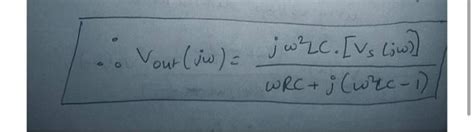 ∴ Vout(jω) = jω²LC·[Vs(jω)] / ωRC + j(ω²LC − 1)